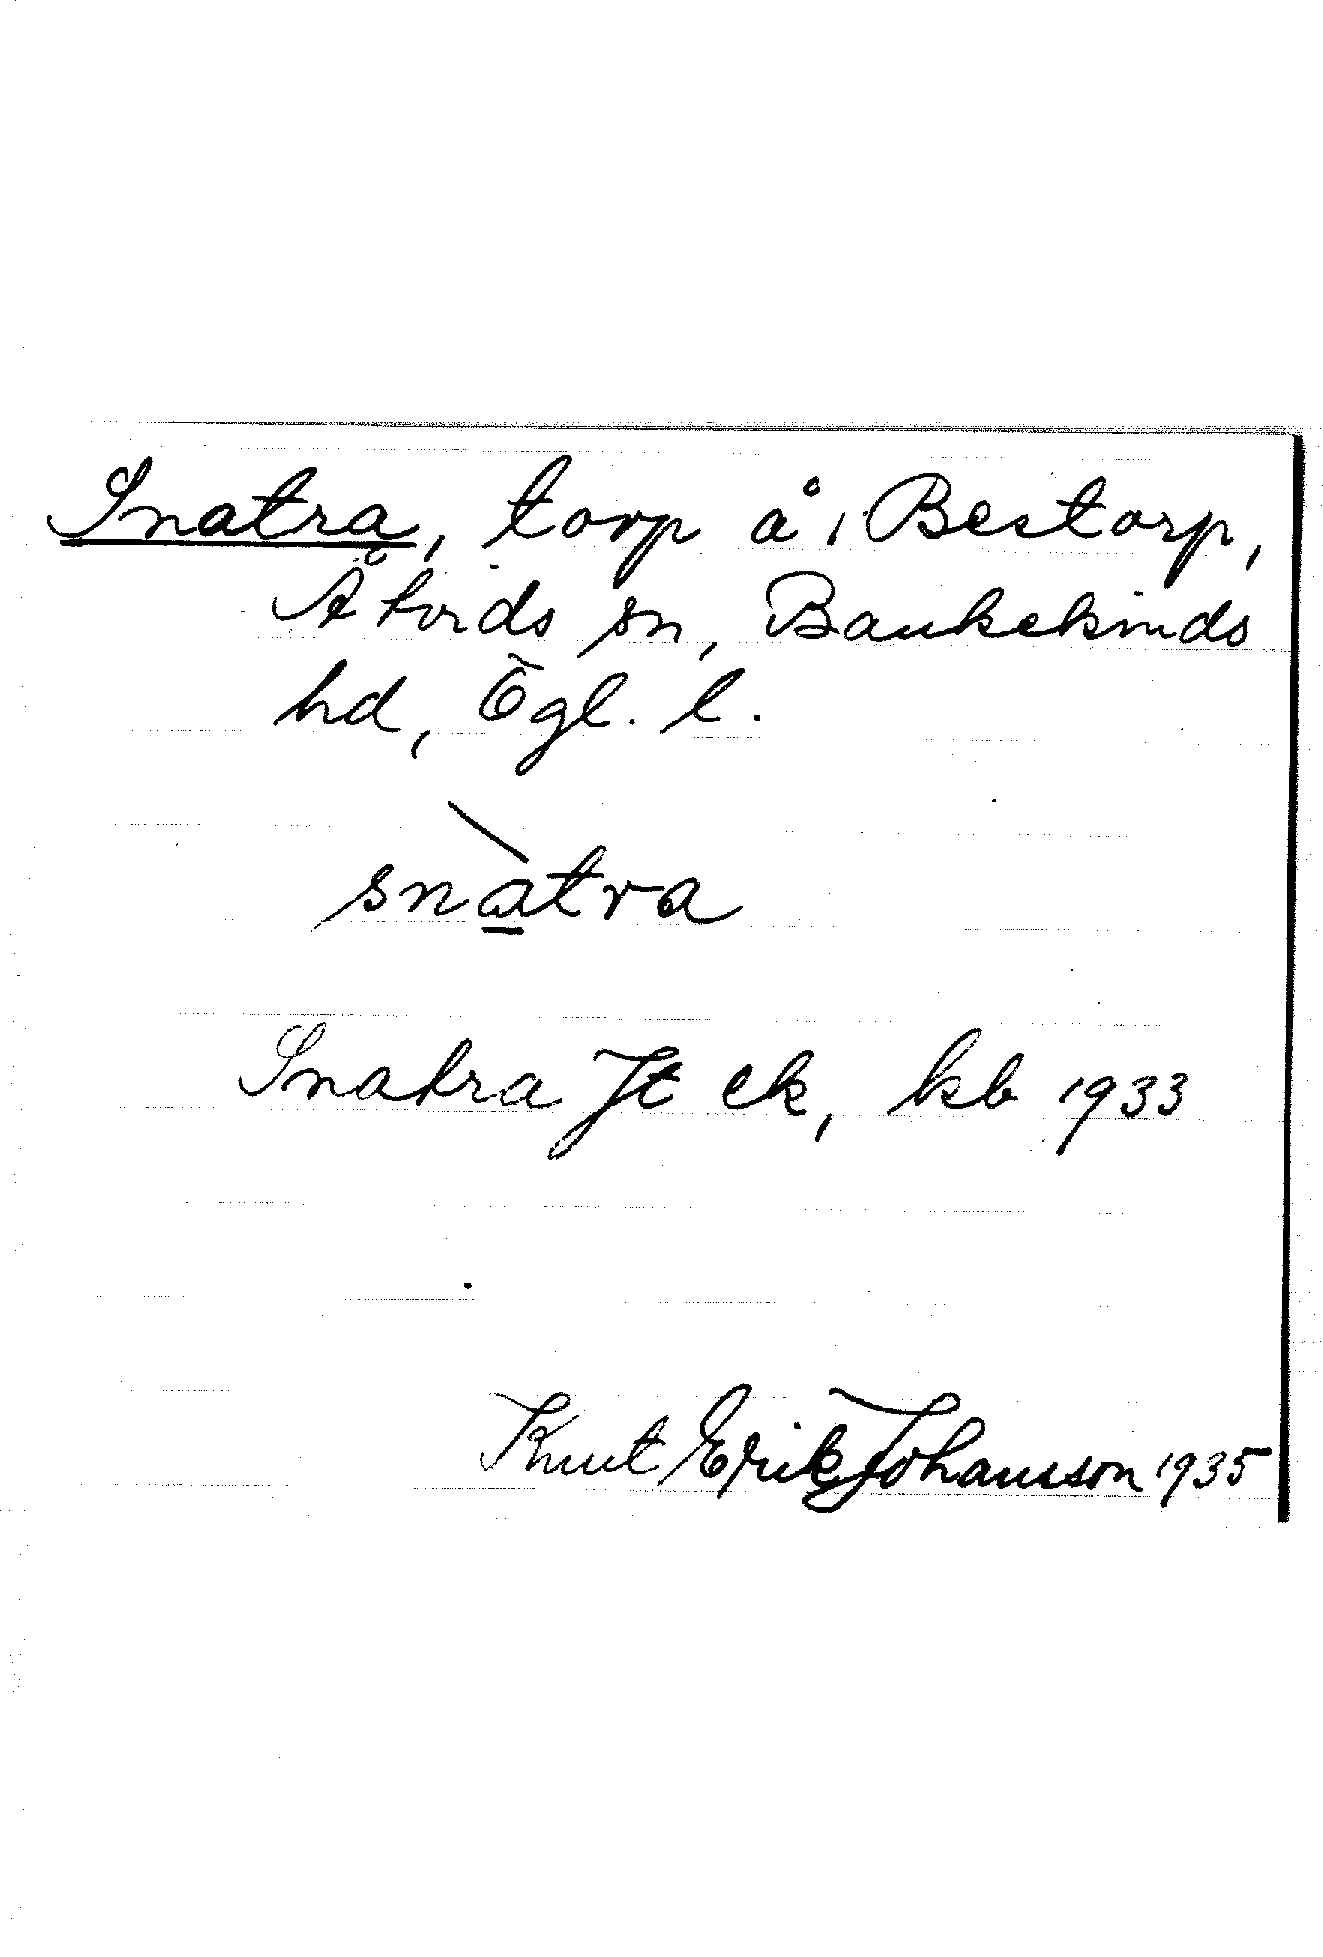 Snatra, torp å, Bestorp,
Åtvids sn, Bankekinds
hd, Ögl. l.
snatra
Snatra Jt ek, kb 1933
Knut Erik Johansson 1935